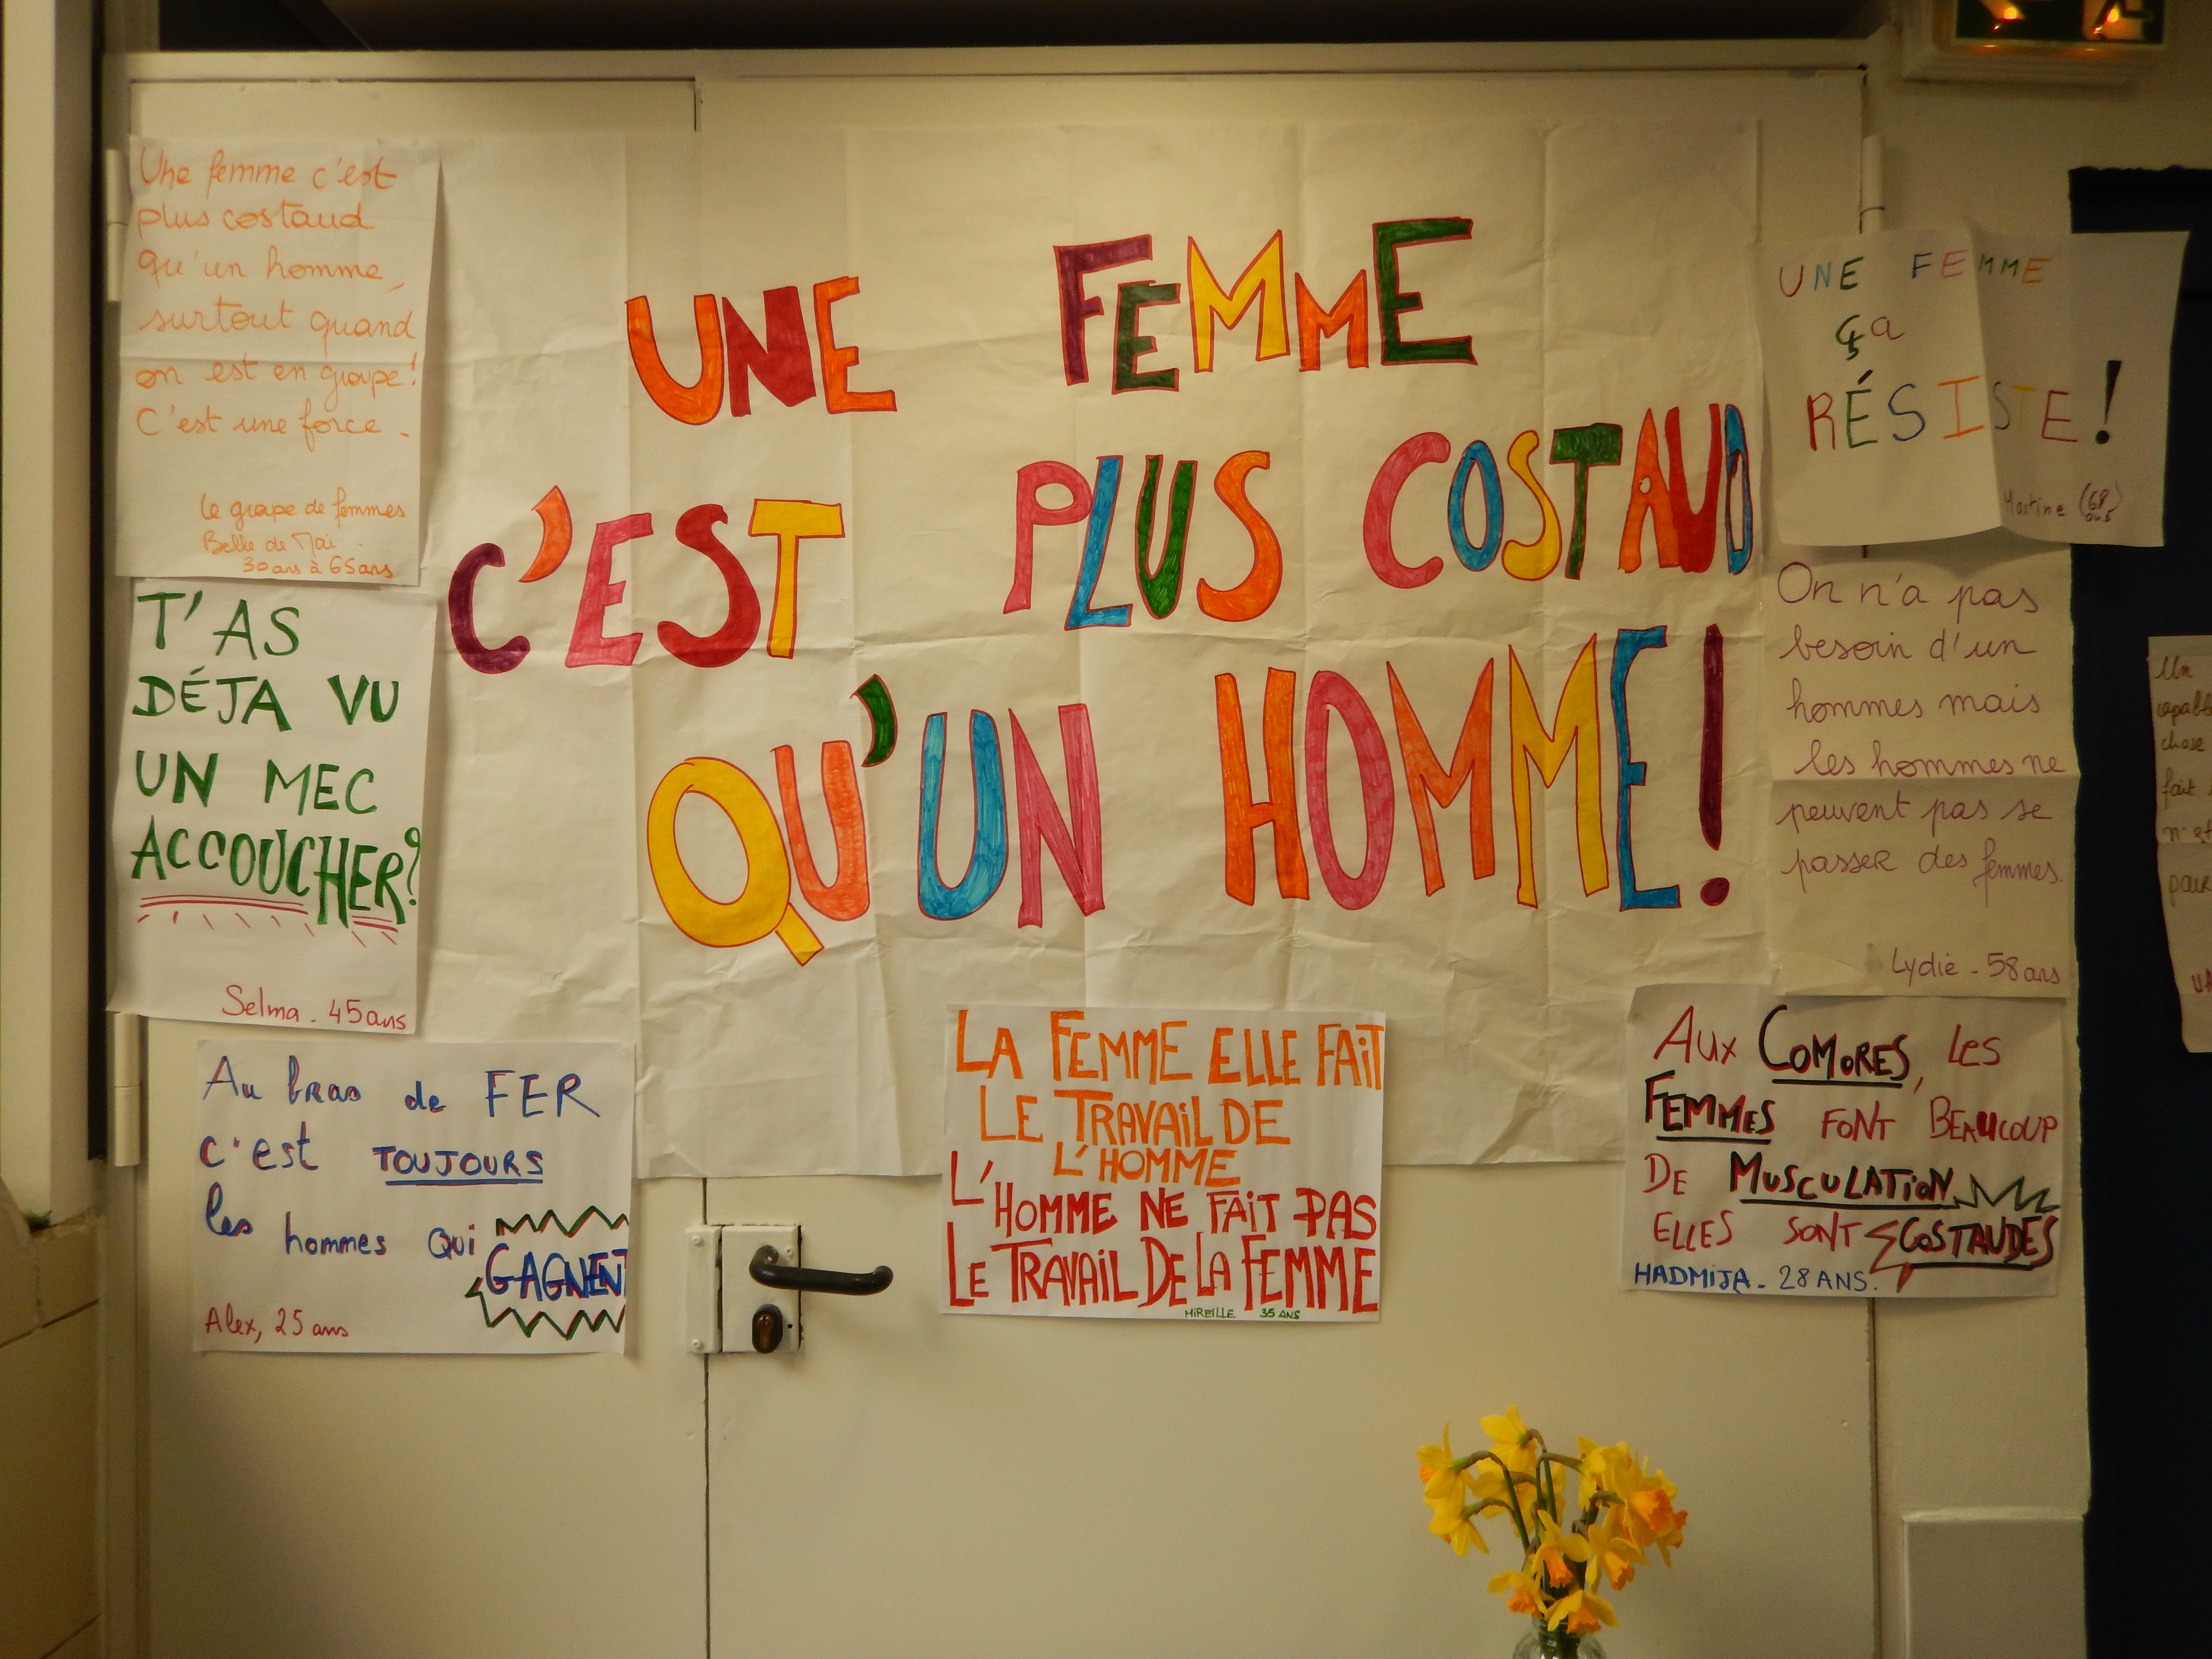 Une femme c'est
plus costaud
qu'un homme,
surtout quand
on est en groupe!
C'est une force.
Le groupe de femmes
Belle de Mai.
30 ans à 65 ans
T'AS
DÉJA VU
UN MEC
ACCOUCHER?
Selma - 45 ans
Au bras de FER
c'est TOUJOURS
les hommes qui
GAGNENT
Alex, 25 ans
UNE FEMME
C'EST PLUS COSTAUD
QU'UN HOMME!
LA FEMME ELLE FAIT
LE TRAVAIL DE
L'HOMME
L'HOMME NE FAIT PAS
LE TRAVAIL DE LA FEMME
MIREILLE 35 ANS
UNE FEMME
ça
RÉSISTE!
Martine (68 ans)
On n'a pas
besoin d'un
hommes mais
les hommes ne
peuvent pas se
passer des femmes.
Lydie - 58 ans
AUX COMORES, LES
FEMMES FONT BEAUCOUP
DE MUSCULATION
ELLES SONT COSTAUDES
HADMIJA - 28 ANS.
Un
chose
fait